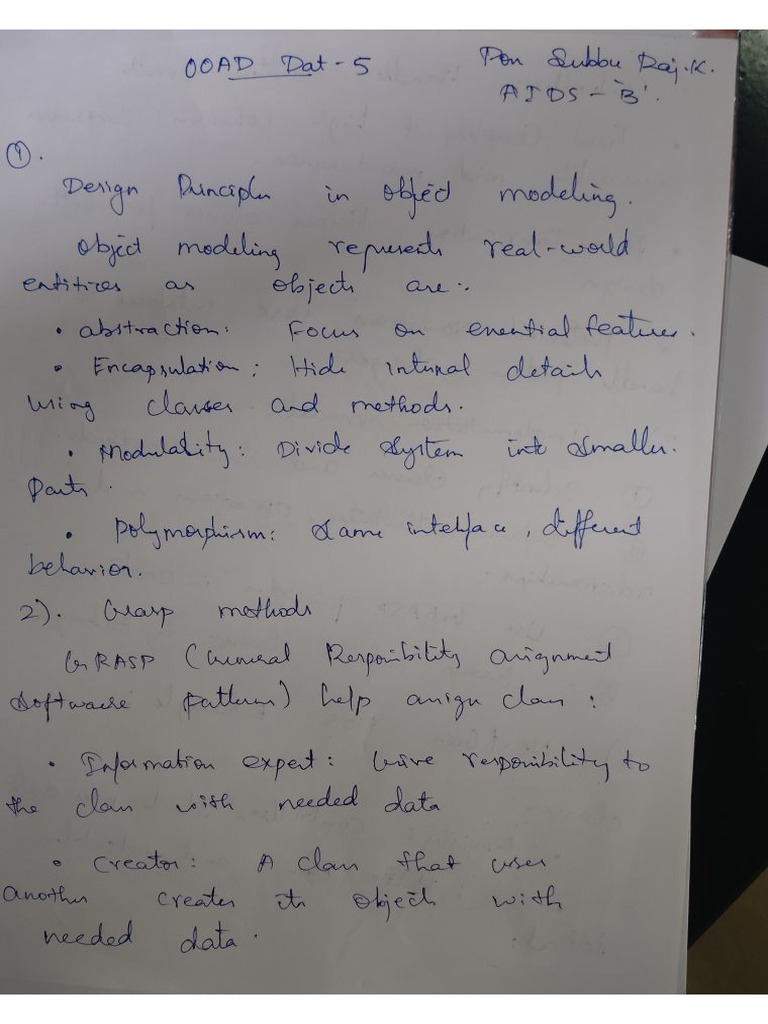 OOAD Dat - 5
Pon Subbu Raj.K.
AIDS - 'B'.
1.
Design Principles in object modeling.
Object modeling represents real-world
entities as objects are:
• abstraction: Focus on essential features.
• Encapsulation: Hide internal details
using classes and methods.
• Modularity: Divide System into smaller
Parts.
• Polymorphism: same interface, different
behavior.
2). Grasp methods
GRASP (General Responsibility assignment
Software pattern) help assign class:
• Information expert: Give responsibility to
the class with needed data
• Creator: A class that uses
another creates its objects with
needed data.